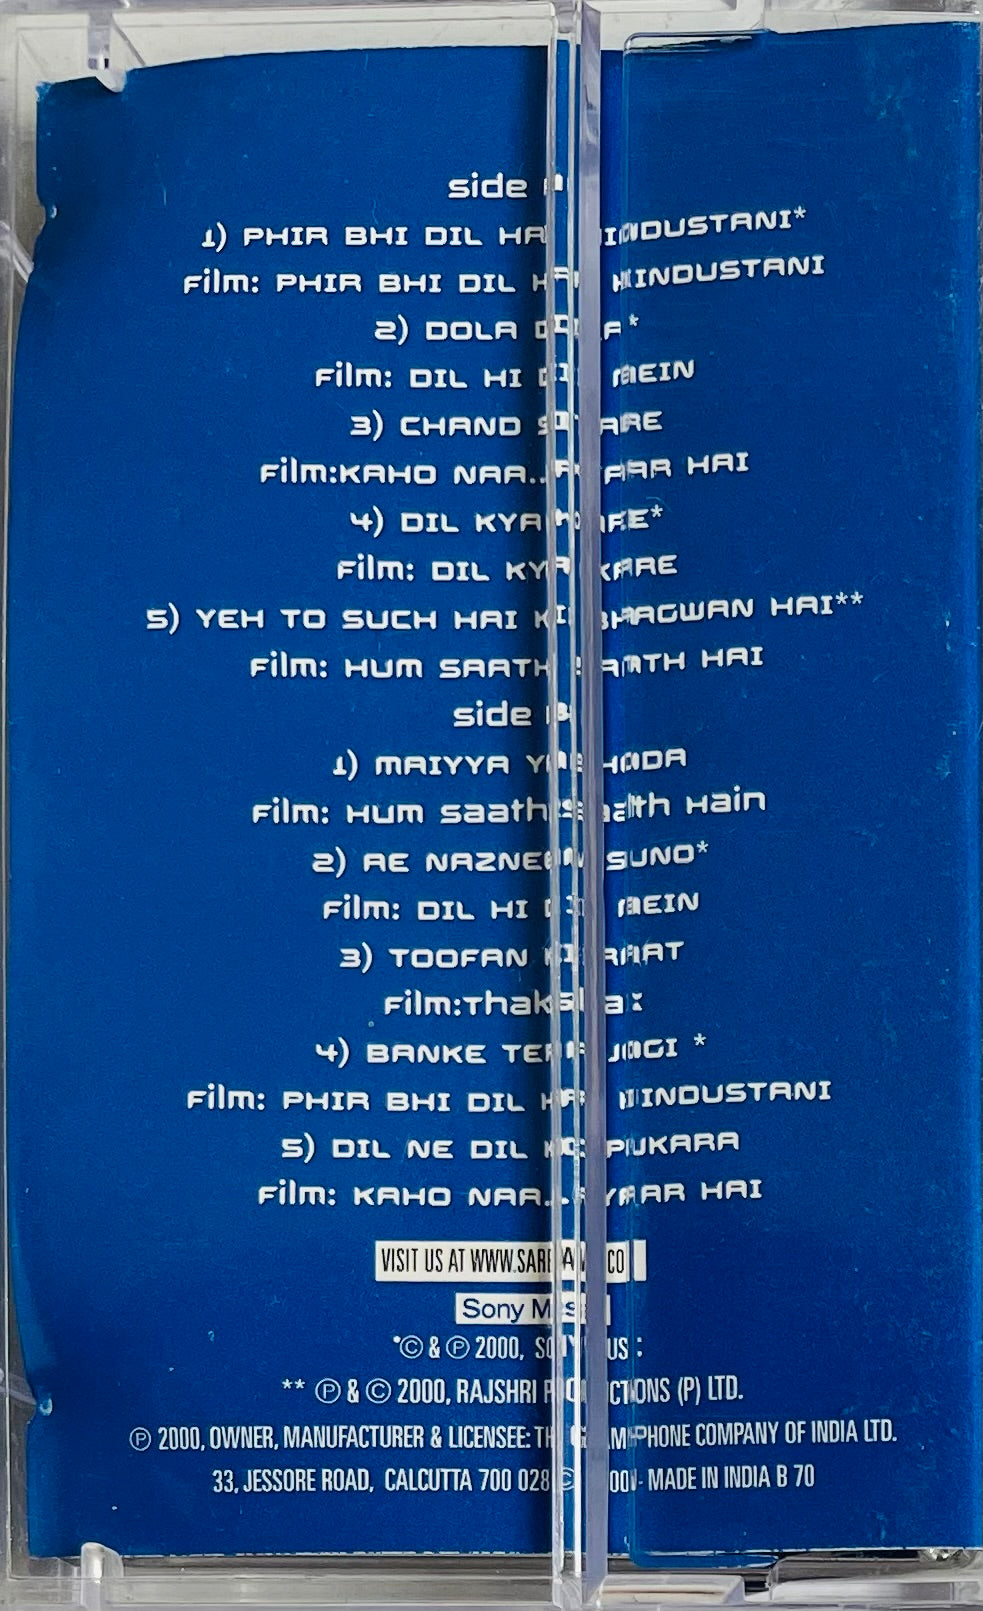 side A
1) PHIR BHI DIL HAI HINDUSTANI*
Film: PHIR BHI DIL HAI HINDUSTANI
2) DOLA DOLA*
Film: DIL HI DIL MEIN
3) CHAND SITARE
Film:KAHO NAA..PYAAR HAI
4) DIL KYA KARE*
Film: DIL KYA KARE
5) YEH TO SUCH HAI KI BHAGWAN HAI**
Film: HUM SAATH SAATH HAI
side B
1) MAIYYA YASHODA
Film: Hum Saath Saath Hain
2) AE NAZNEEN SUNO*
Film: DIL HI DIL MEIN
3) TOOFAN KI RAAT
Film:Thakshak
4) BANKE TERA JOGI *
Film: PHIR BHI DIL HAI HINDUSTANI
5) DIL NE DIL KO PUKARA
Film: KAHO NAA..PYAAR HAI
VISIT US AT
Sony Music
*© & ℗ 2000, SONY MUSIC
** ℗ & © 2000, RAJSHRI PRODUCTIONS (P) LTD.
℗ 2000, OWNER, MANUFACTURER & LICENSEE: THE GRAMOPHONE COMPANY OF INDIA LTD.
33, JESSORE ROAD, CALCUTTA 700 028 © MADE IN INDIA B 70